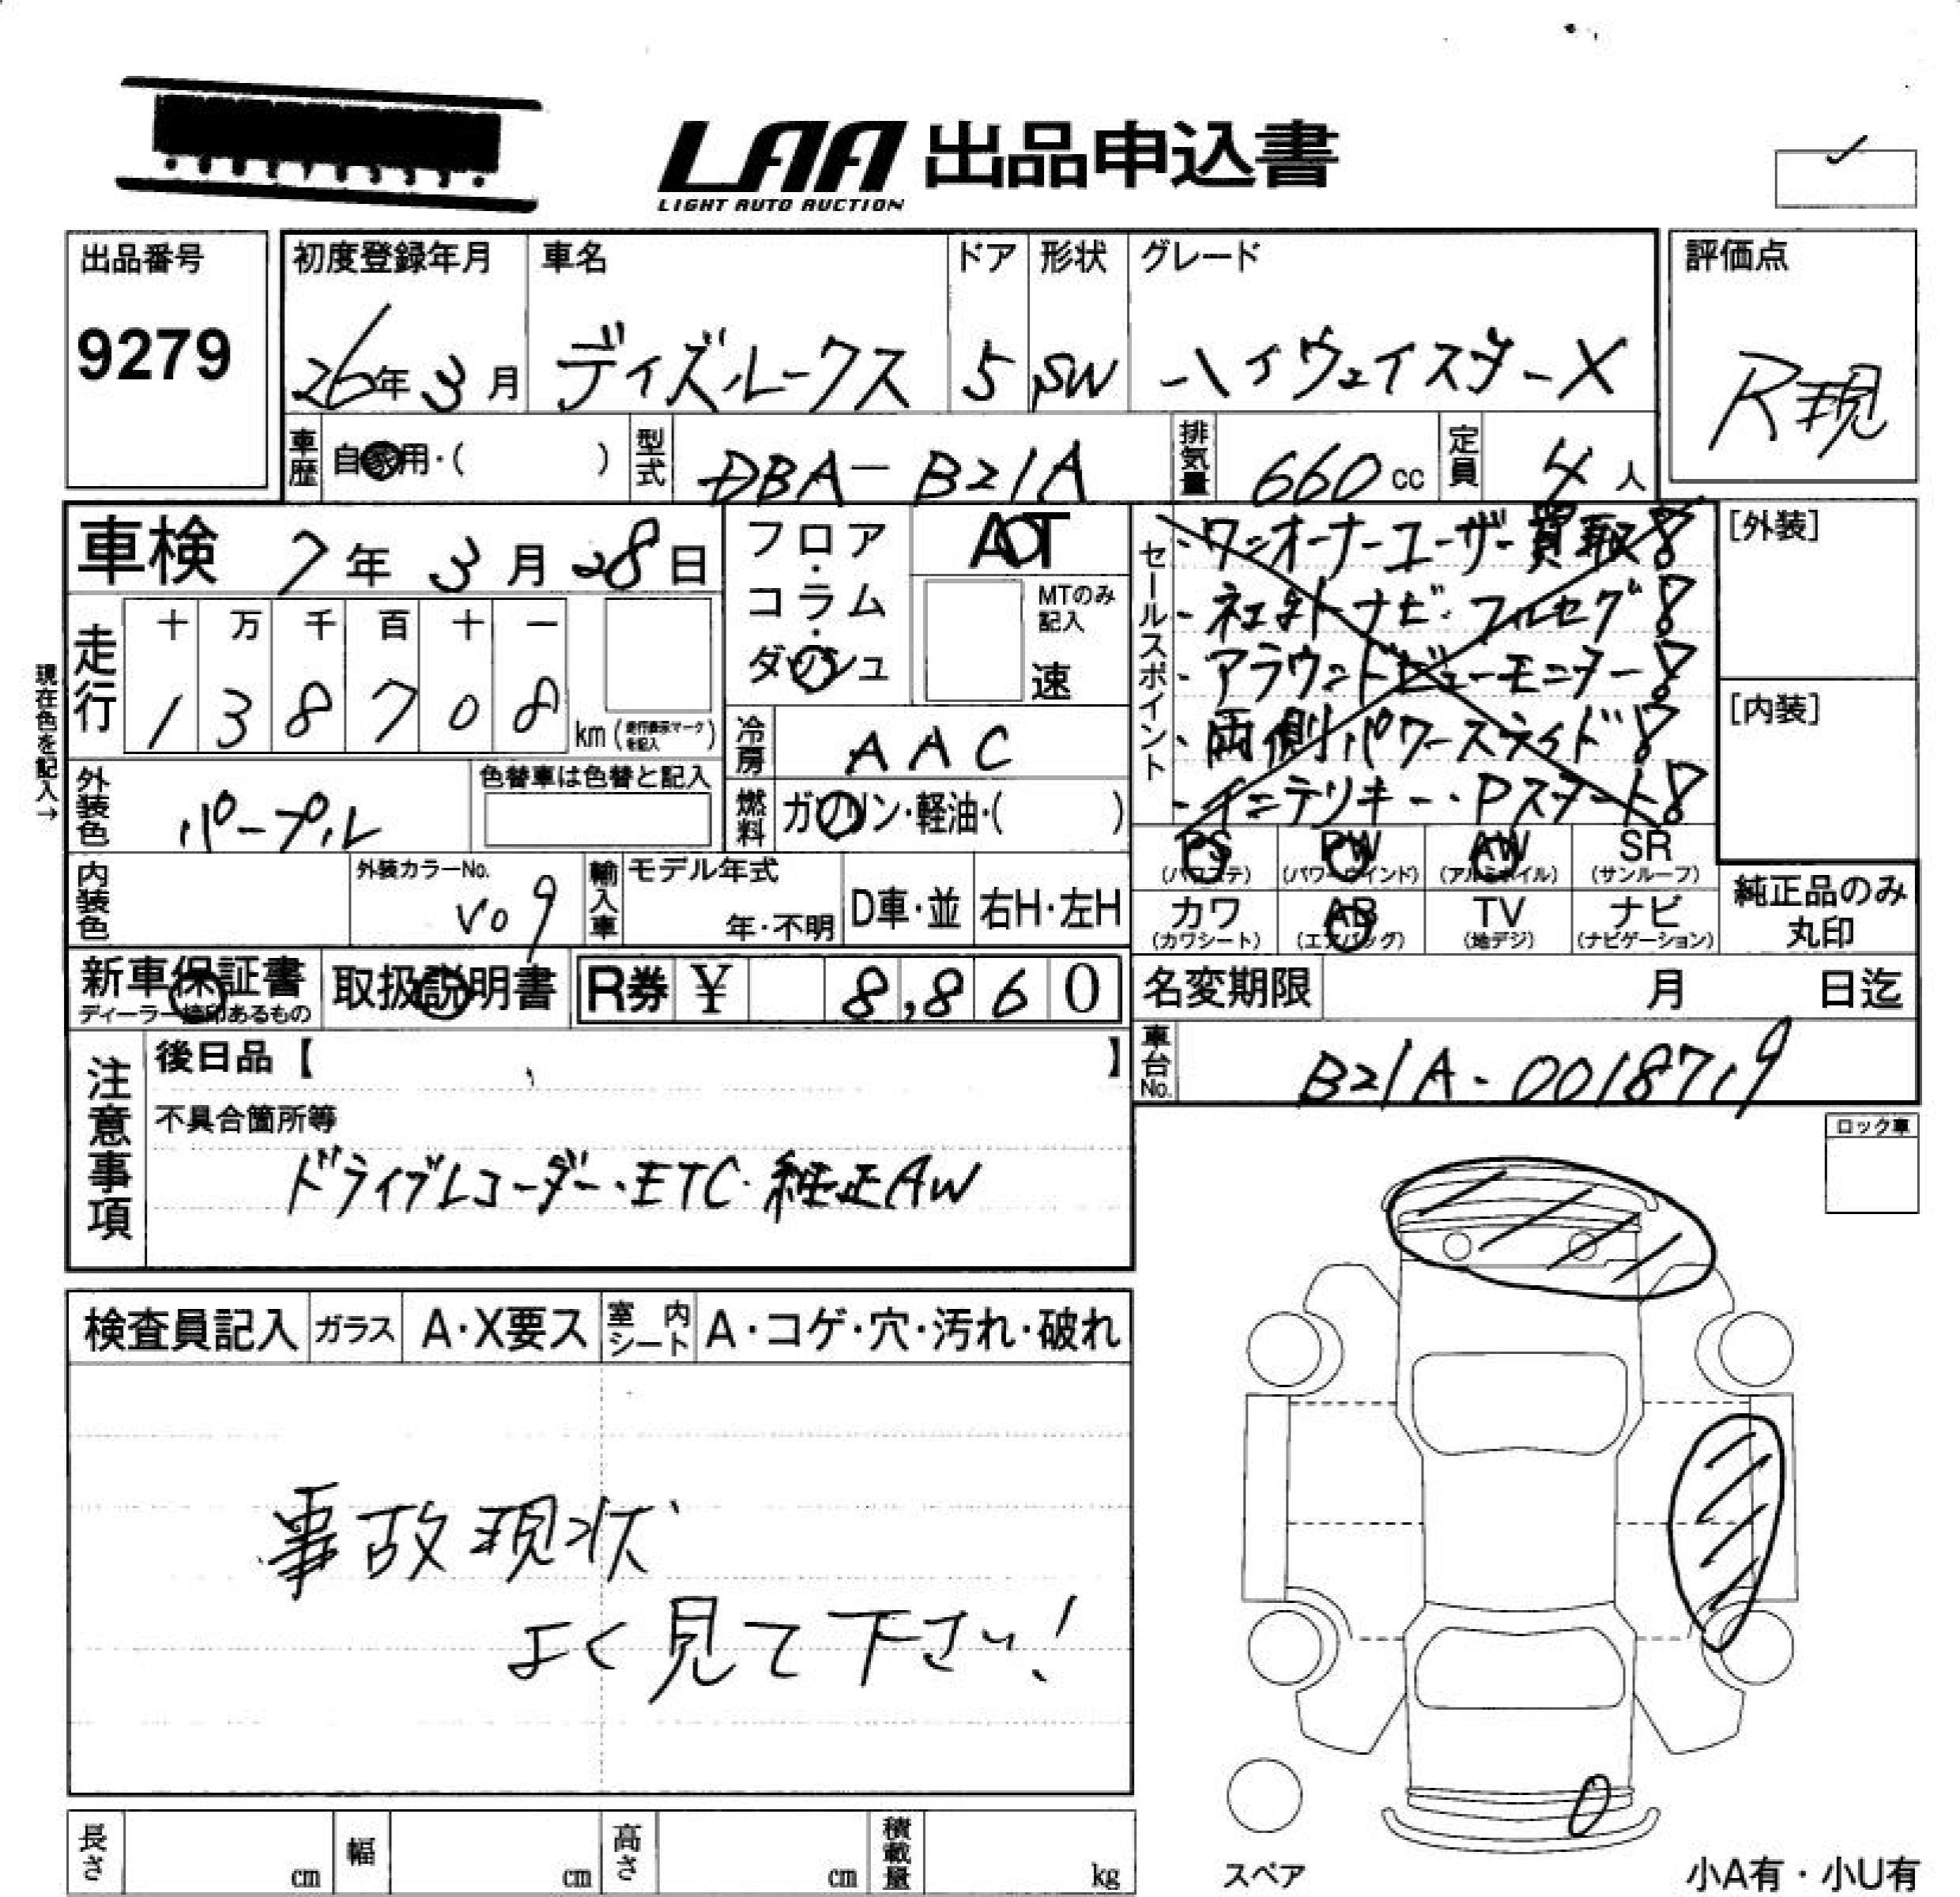 LAA 出品申込書
LIGHT AUTO AUCTION
出品番号
9279
初度登録年月
26年3月
車名
ディズルークス
ドア
5
形状
SW
グレード
ハイウェイスターX
評価点
R現
車歴
自家用・( )
型式
DBA-B21A
排気量
660cc
定員
4人
車検 7年3月28日
走行
十 万 千 百 十 一
1 3 8 7 0 8
km(走行表示マークを記入)
現在色を記入→
外装色
パープル
色替車は色替と記入
内装色
外装カラーNo.
V09
フロア・コラム・ダッシュ
AT
MTのみ記入
速
冷房
AAC
燃料
ガソリン・軽油・( )
輸入車
モデル年式
年・不明
D車・並
右H・左H
セールスポイント
・ワンオーナーユーザー買取!
・社外ナビ・フルセグ!
・アラウンドビューモニター!
・両側パワースライド!
・インテリキー・Pスタート!
[外装]
[内装]
PS (パワステ)
PW (パワーウインド)
AW (アルミホイル)
SR (サンルーフ)
カワ (カワシート)
AB (エアバッグ)
TV (地デジ)
ナビ (ナビゲーション)
純正品のみ丸印
新車保証書
ディーラー捺印あるもの
取扱説明書
R券 ¥ 8,860
名変期限 月 日迄
車台No.
B21A-0018719
注意事項
後日品【 】
不具合箇所等
ドライブレコーダー・ETC・純正AW
ロック車
検査員記入
ガラス
A・X要ス
室内シート
A・コゲ・穴・汚れ・破れ
事故現状
よく見て下さい!
長さ cm
幅 cm
高さ cm
積載量 kg
スペア
小A有・小U有